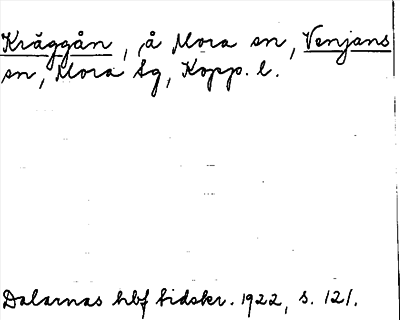 Kräggån, å Mora sn, Venjans
sn, Mora tg, Kopp. l.
Dalarnas hbf tidskr. 1922, s. 121.